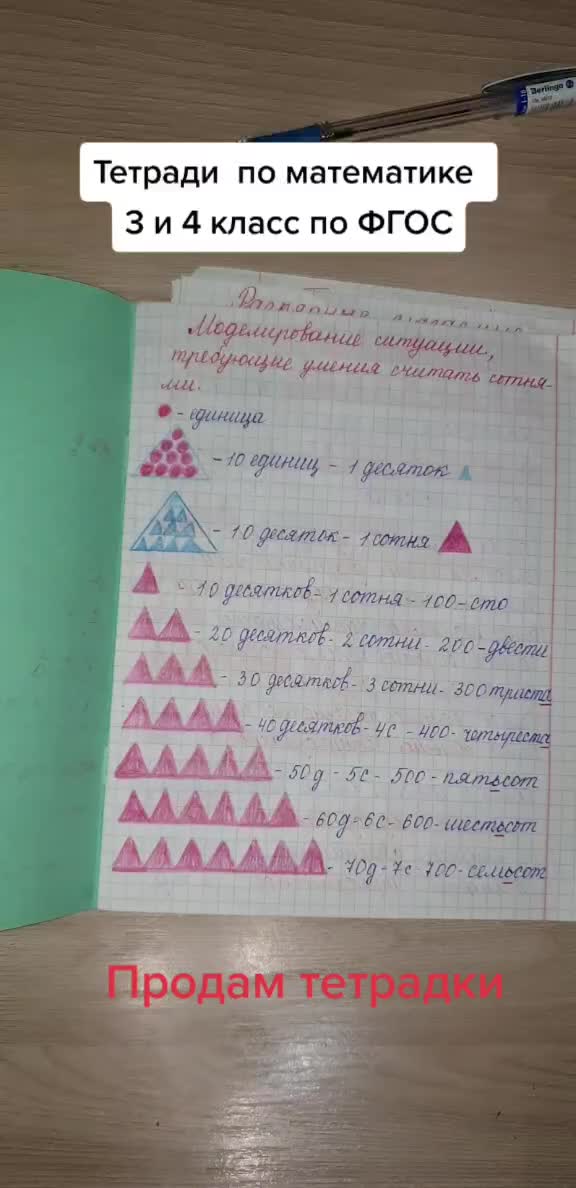 Berlingo
Тетради по математике
3 и 4 класс по ФГОС
Моделирование ситуации,
требующие умения считать сотня-
ми.
- единица
- 10 единиц - 1 десяток
- 10 десяток - 1 сотня
- 10 десятков - 1 сотня - 100 - сто
- 20 десятков - 2 сотни - 200 - двести
- 30 десятков - 3 сотни - 300 триста
- 40 десятков - 4с - 400 - четыреста
- 50д - 5с - 500 - пятьсот
- 60д - 6с - 600 - шестьсот
- 70д - 7с 700 - семьсот
Продам тетрадки